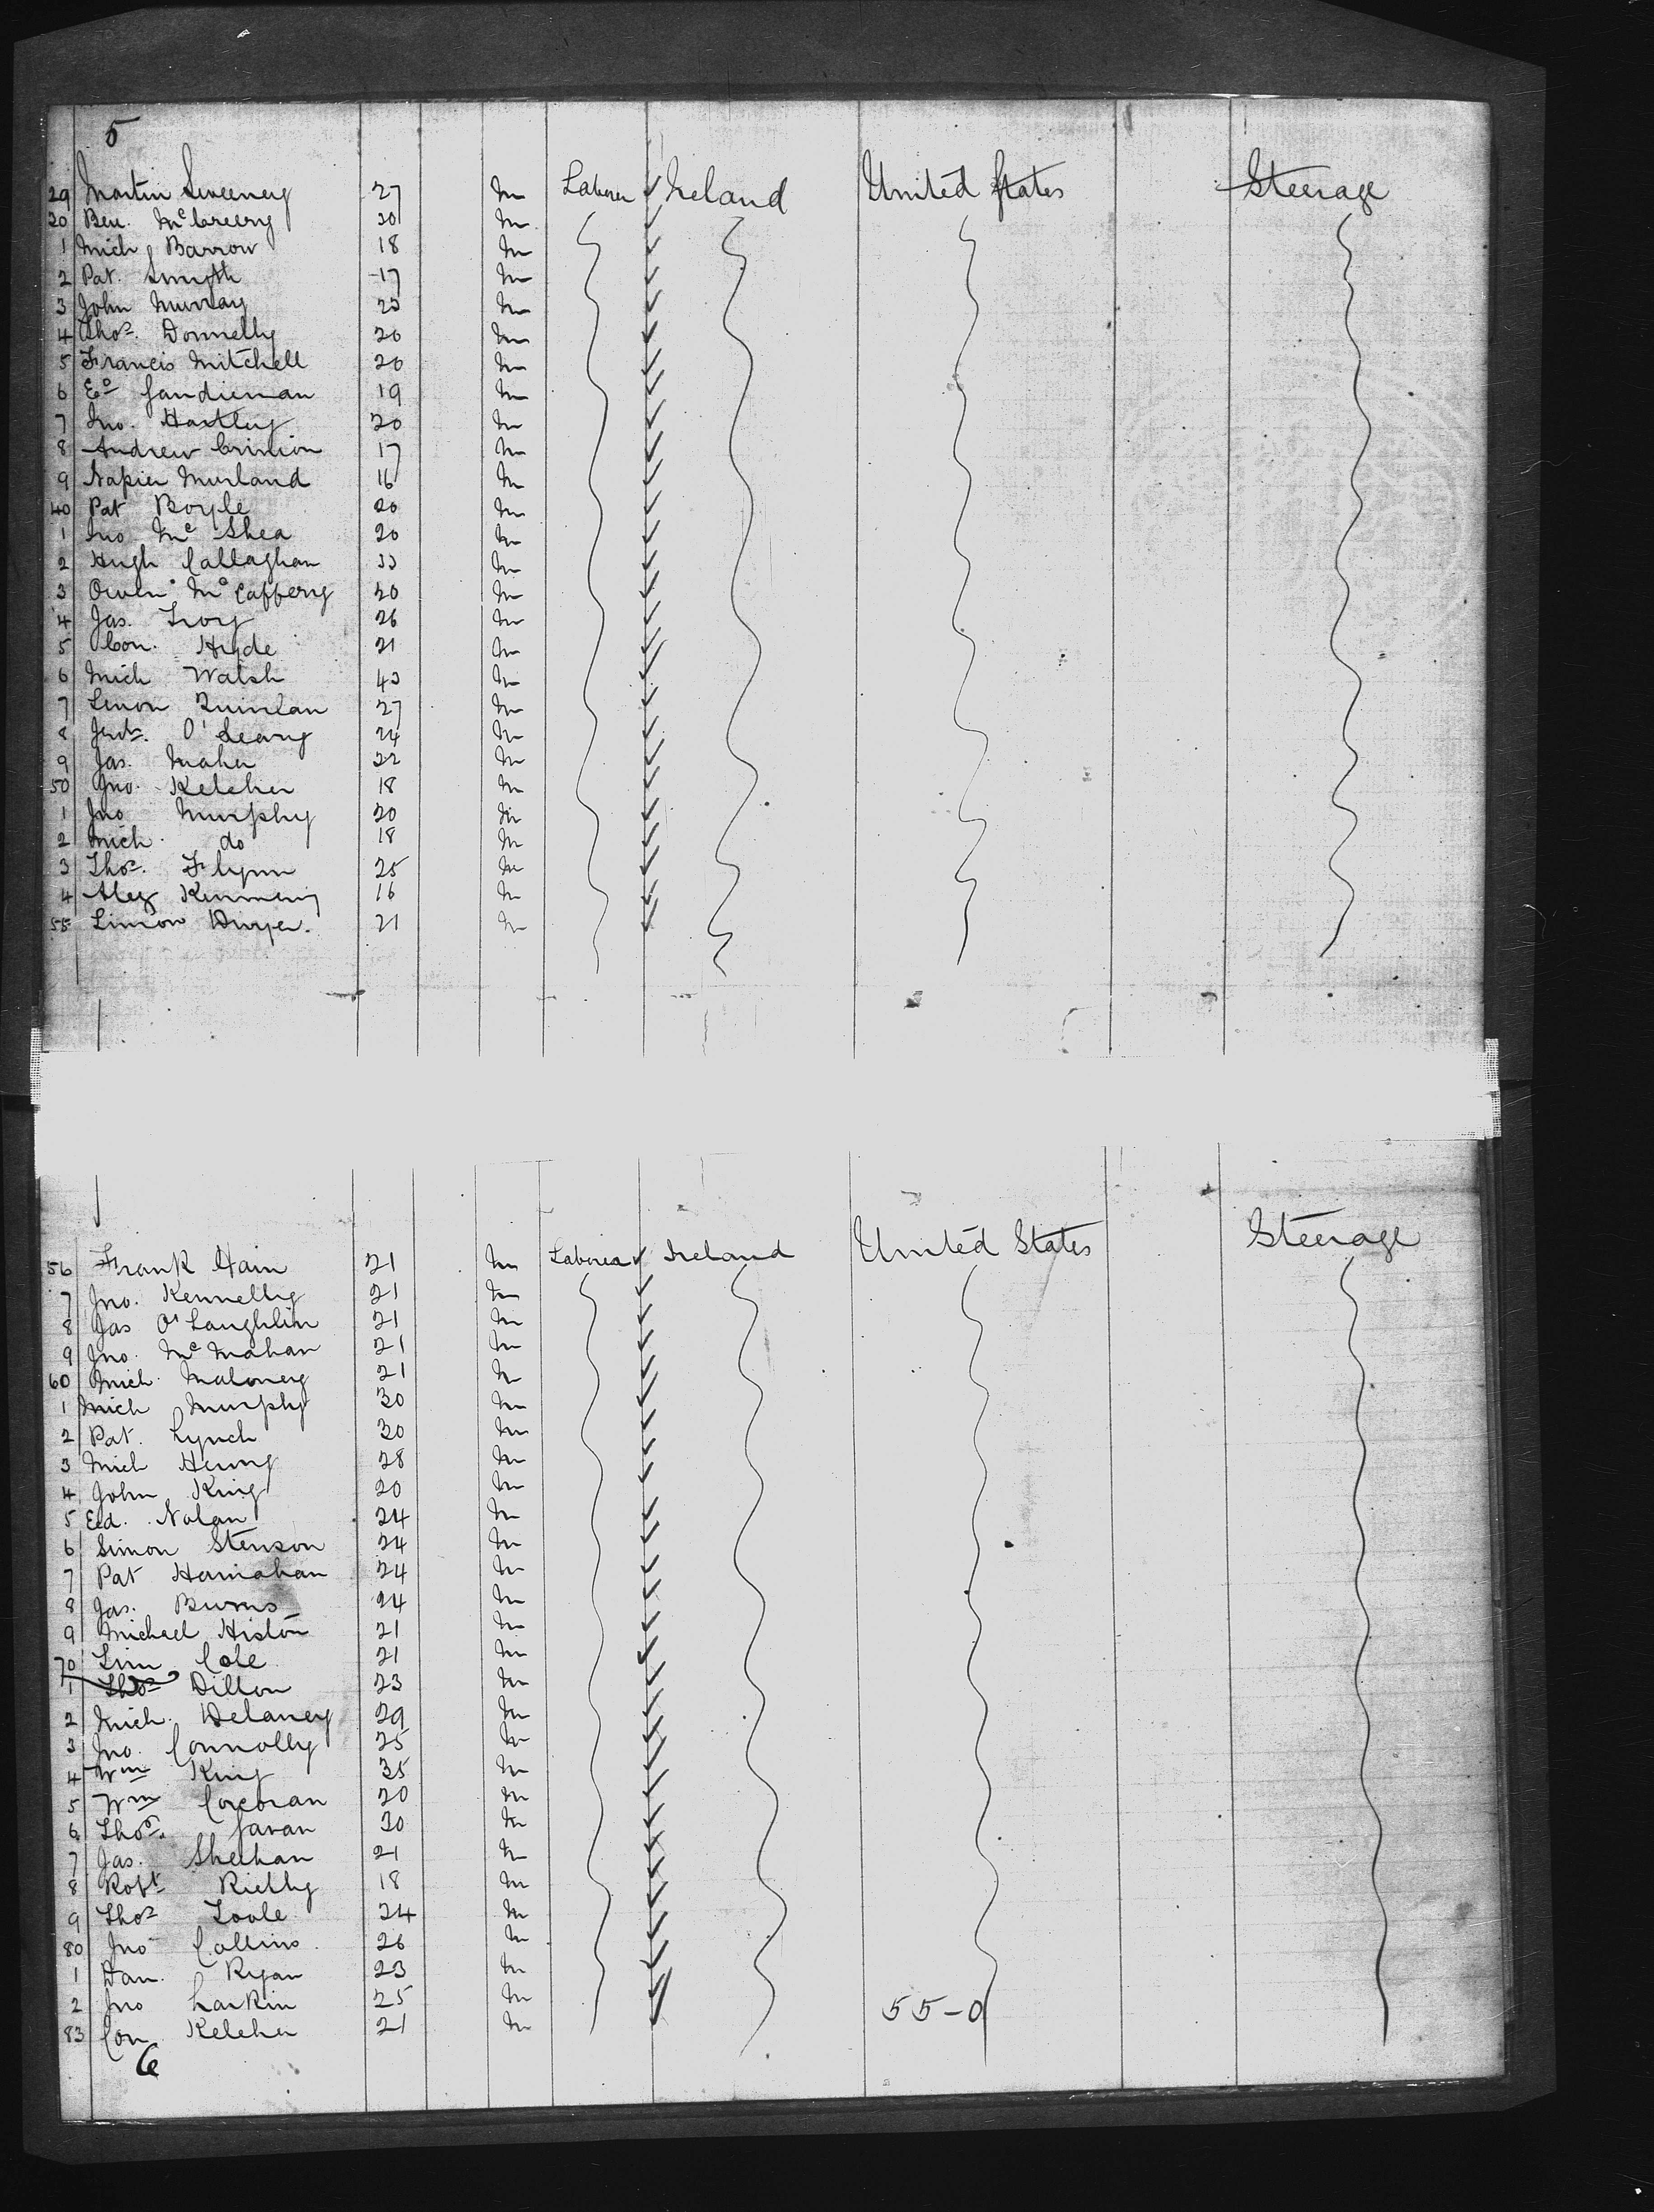 5
29 Martin Sweeney 27 m Laborer Ireland United States Steerage
30 Ben. McCreery 20 m
1 Mich Barrow 18 m
2 Pat. Smyth 17 m
3 John Murray 25 m
4 Thos. Donnelly 20 m
5 Francis Mitchell 20 m
6 Ed Sandieman 19 m
7 Jno. Hartley 20 m
8 Andrew Crinion 17 m
9 Napier Murland 16 m
40 Pat Boyle 20 m
1 Jno Mc Shea 20 m
2 Hugh Callaghan 33 m
3 Owen McCaffery 20 m
4 Jas. Troy 26 m
5 Con. Hyde 21 m
6 Mich Walsh 43 m
7 Simon Quinlan 27 m
8 O'Leary 24 m
9 Jas. Maher 22 m
50 Jno. Keleher 18 m
1 Jno Murphy 20 m
2 Mich do 18 m
3 Thos. Flynn 25 m
4 Alex 16 m
55 Simon Dwyer. 21 m
56 Frank Hain 21 m Laborer Ireland United States Steerage
7 Jno. Kennelly 21 m
8 Jas O'Laughlin 21 m
9 Jno. McMahan 21 m
60 Mich. Maloney 21 m
1 Mich Murphy 30 m
2 Pat. Lynch 30 m
3 Mich 28 m
4 John King 20 m
5 Ed. Nolan 24 m
6 Simon Stenson 24 m
7 Pat Hannahan 24 m
8 Jas. Burns 24 m
9 Michael Histon 21 m
70 Tim Cole 21 m
1 Thos Dillon 23 m
2 Mich. Delaney 29 m
3 Jno. Connolly 25 m
4 Wm King 35 m
5 Wm Corcoran 20 m
6 Thos. Savan 30 m
7 Jas. Sheehan 21 m
8 Robt Rielly 18 m
9 Thos Toole 24 m
80 Jno Collins 26 m
1 Dan. Ryan 23 m
2 Jno Larkin 25 m 55-0
83 Con Keleher 21 m
6